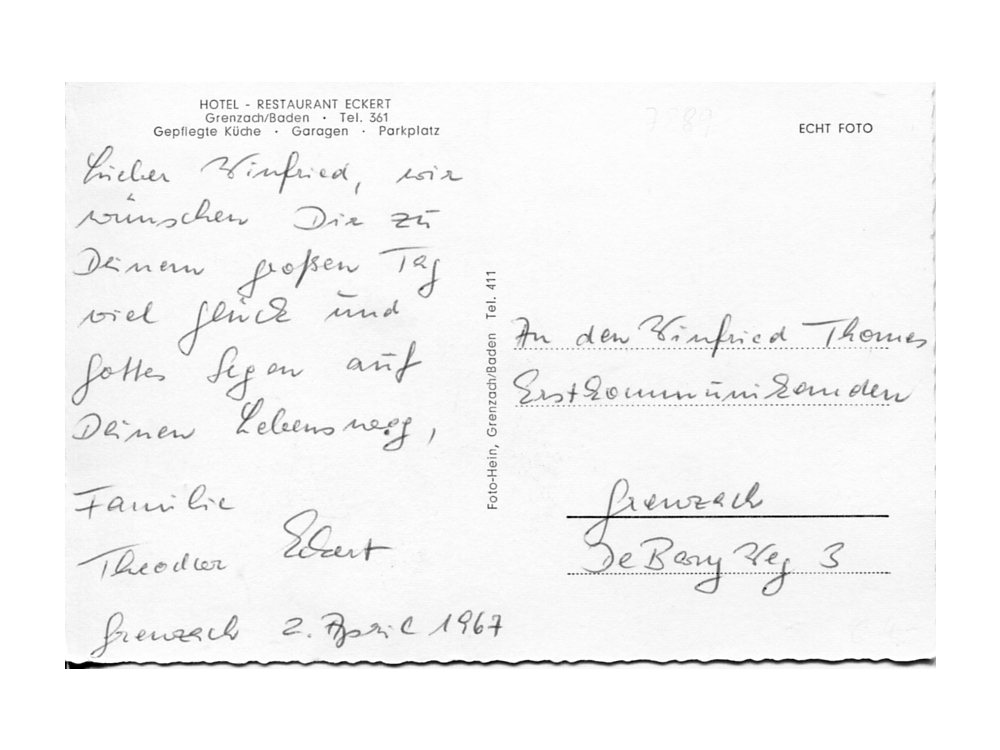 HOTEL - RESTAURANT ECKERT
Grenzach/Baden · Tel. 361
Gepflegte Küche · Garagen · Parkplatz
Lieber Winfried, wir
wünschen Dir zu
Deinem großen Tag
viel Glück und
Gottes Segen auf
Deinen Lebensweg,
Familie
Theodor Eckert
Grenzach 2. April 1967
Foto-Hein, Grenzach/Baden Tel. 411
7989
ECHT FOTO
An den Winfried Thomas
Erstkommunikanden
Grenzach
De Bary Weg 3